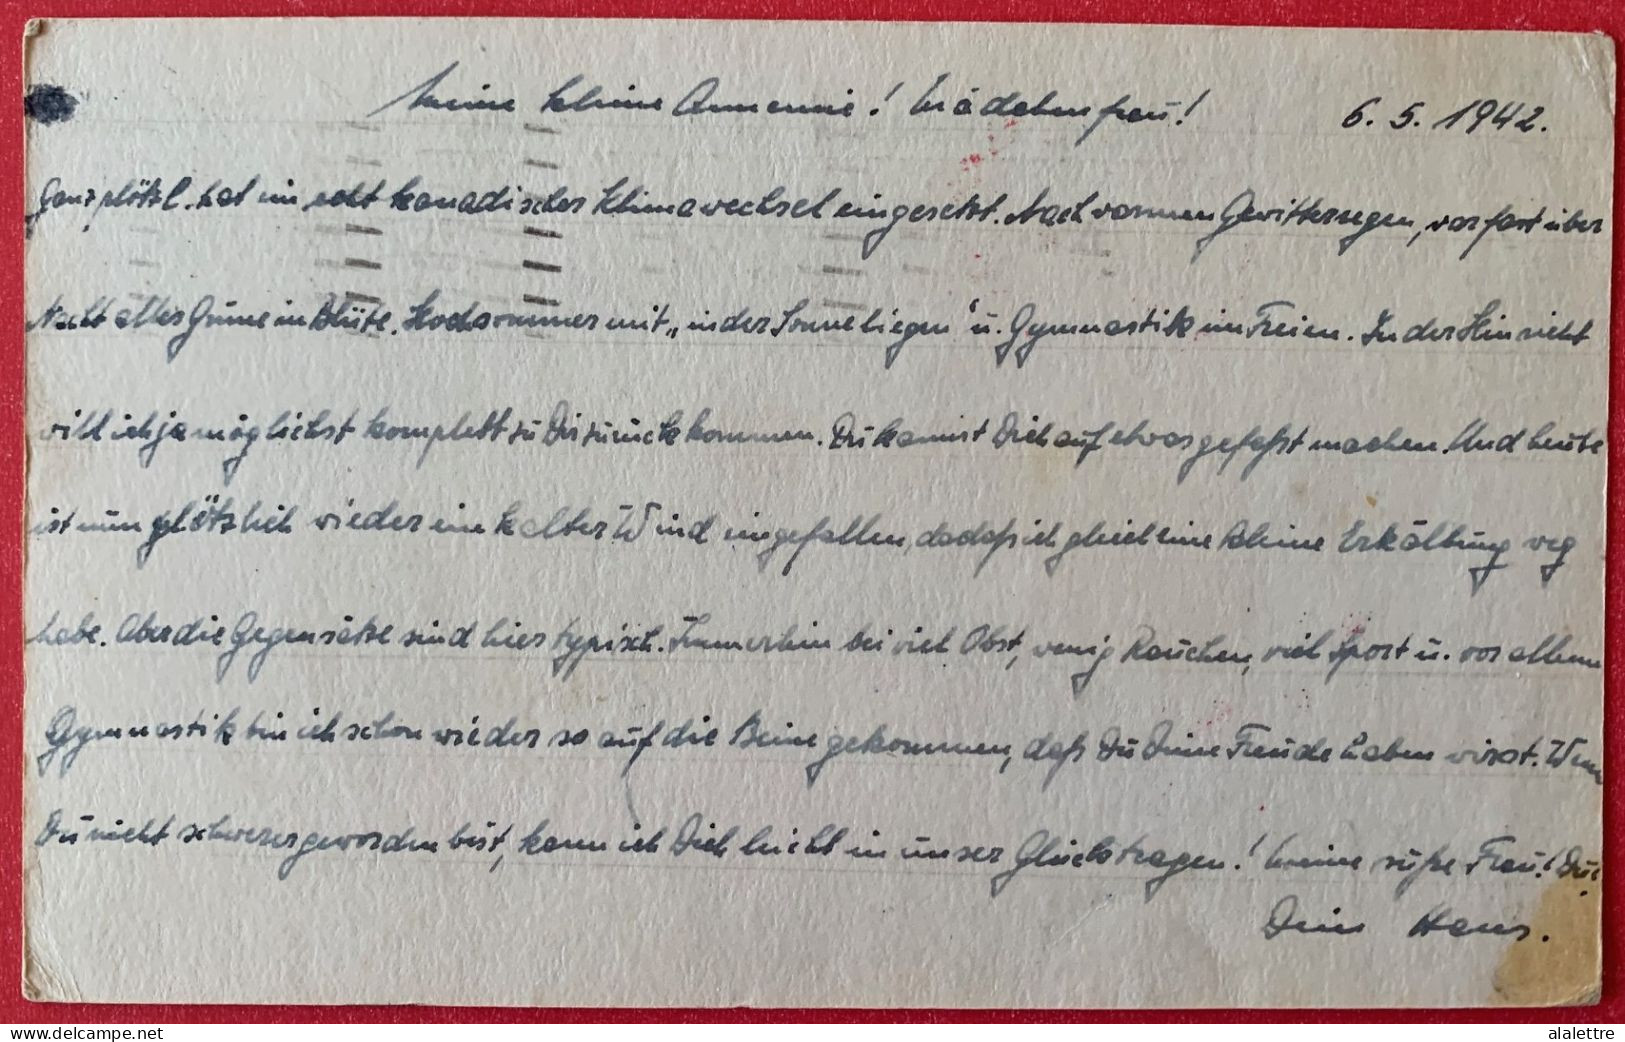 Meine kleine Annemie! Mädchenfrau! 6. 5. 1942.
Ganz plötzl. hat ein echt kanadischer Klimawechsel eingesetzt. Nach warmen Gewitterregen, war fast über
Nacht alles Grüne in Blüte. Hochsommer mit „in der Sonne liegen“ u. Gymnastik im Freien. In der Hinsicht
will ich ja möglichst komplett zu Dir zurückkommen. Du kannst Dich auf etwas gefaßt machen. Und heute
ist nun plötzlich wieder ein kalter Wind eingefallen, sodaß ich gleich eine kleine Erkältung weg
habe. Aber die Gegensätze sind hier typisch. Immerhin bei viel Obst, wenig Rauchen, viel Sport u. vor allem
Gymnastik bin ich schon wieder so auf die Beine gekommen, daß Du Deine Freude haben wirst. Wenn
Du nicht schwerer geworden bist, kann ich Dich leicht in unser Glück tragen! Meine süße Frau! Du!
Dein Hans.
alalettre